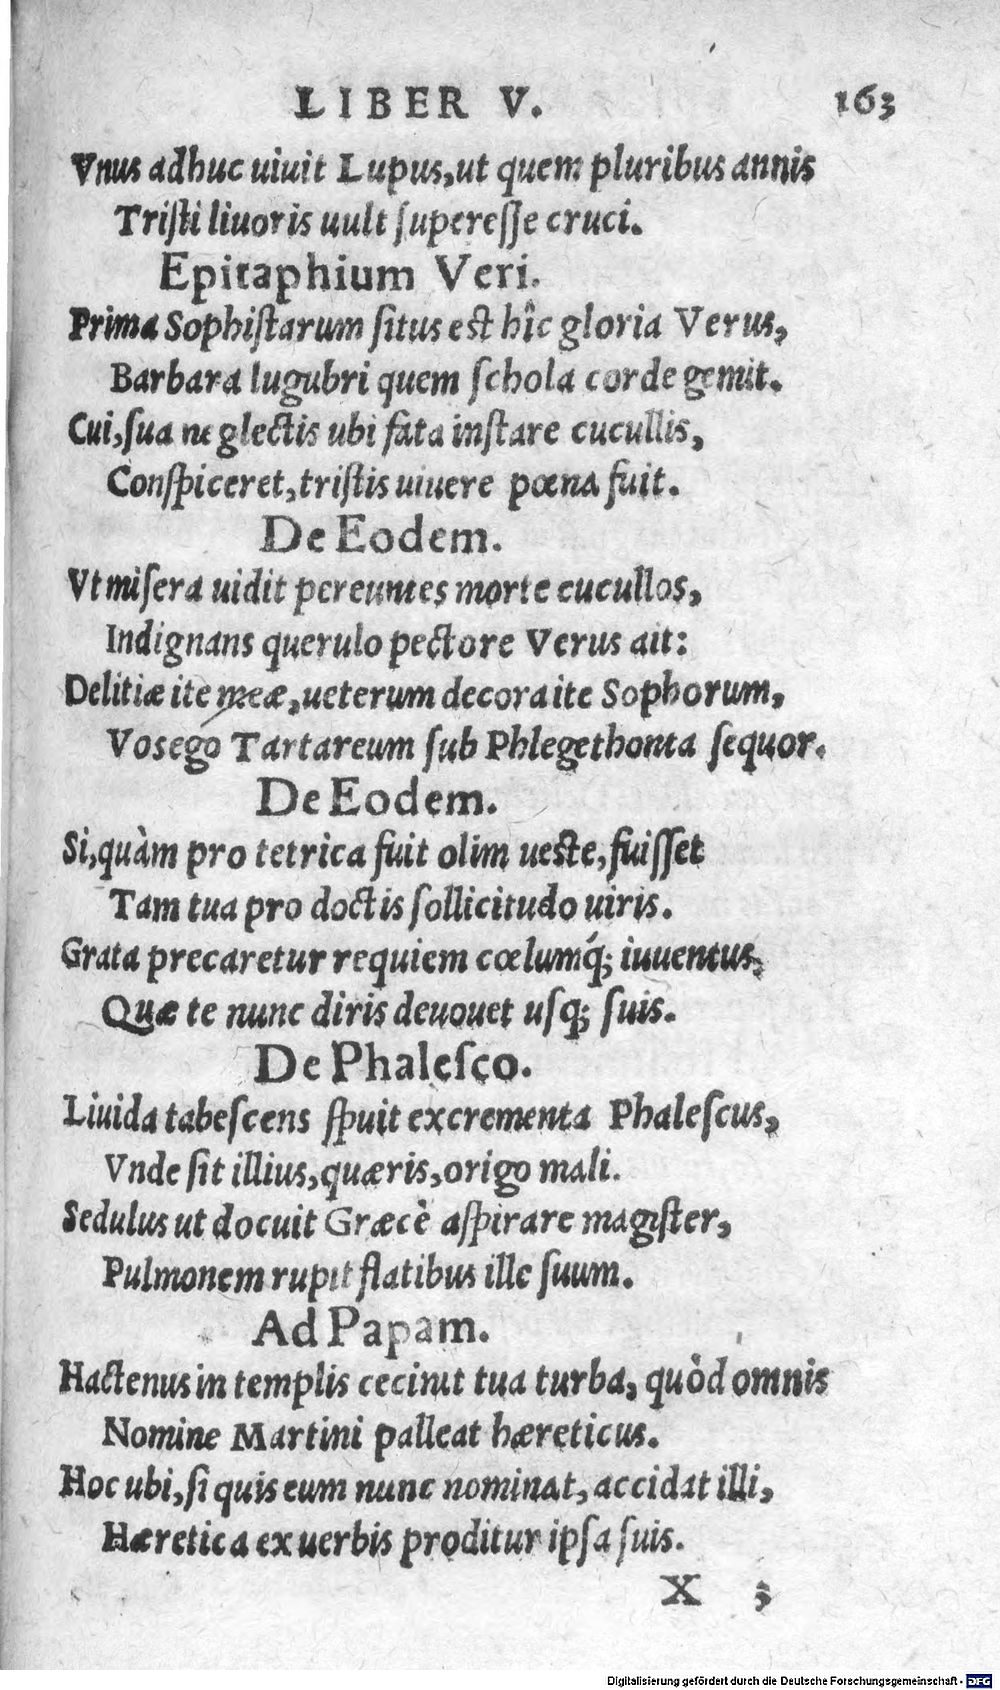 LIBER V. 163
Vnus adhuc uiuit Lupus, ut quem pluribus annis
Tristi liuoris uult superesse cruci.
Epitaphium Veri.
Prima Sophistarum situs est hîc gloria Verus,
Barbara lugubri quem schola corde gemit.
Cui, sua neglectis ubi fata instare cucullis,
Conspiceret, tristis uiuere pœna fuit.
De Eodem.
Vt misera uidit pereuntes morte cucullos,
Indignans querulo pectore Verus ait:
Delitiæ ite meæ, ueterum decora ite Sophorum,
Vosego Tartareum sub Phlegethonta sequor.
De Eodem.
Si, quàm pro tetrica fuit olim ueste, fuisset
Tam tua pro doctis sollicitudo uiris.
Grata precaretur requiem cœlumq́; iuuentus,
Quæ te nunc diris deuouet usq; suis.
De Phalesco.
Liuida tabescens spuit excrementa Phalescus,
Vnde sit illius, quæris, origo mali.
Sedulus ut docuit Græcè aspirare magister,
Pulmonem rupit flatibus ille suum.
Ad Papam.
Hactenus in templis cecinit tua turba, quòd omnis
Nomine Martini palleat hæreticus.
Hoc ubi, si quis eum nunc nominat, accidat illi,
Hæretica ex uerbis proditur ipsa suis.
X 3
Digitalisierung gefördert durch die Deutsche Forschungsgemeinschaft - DFG